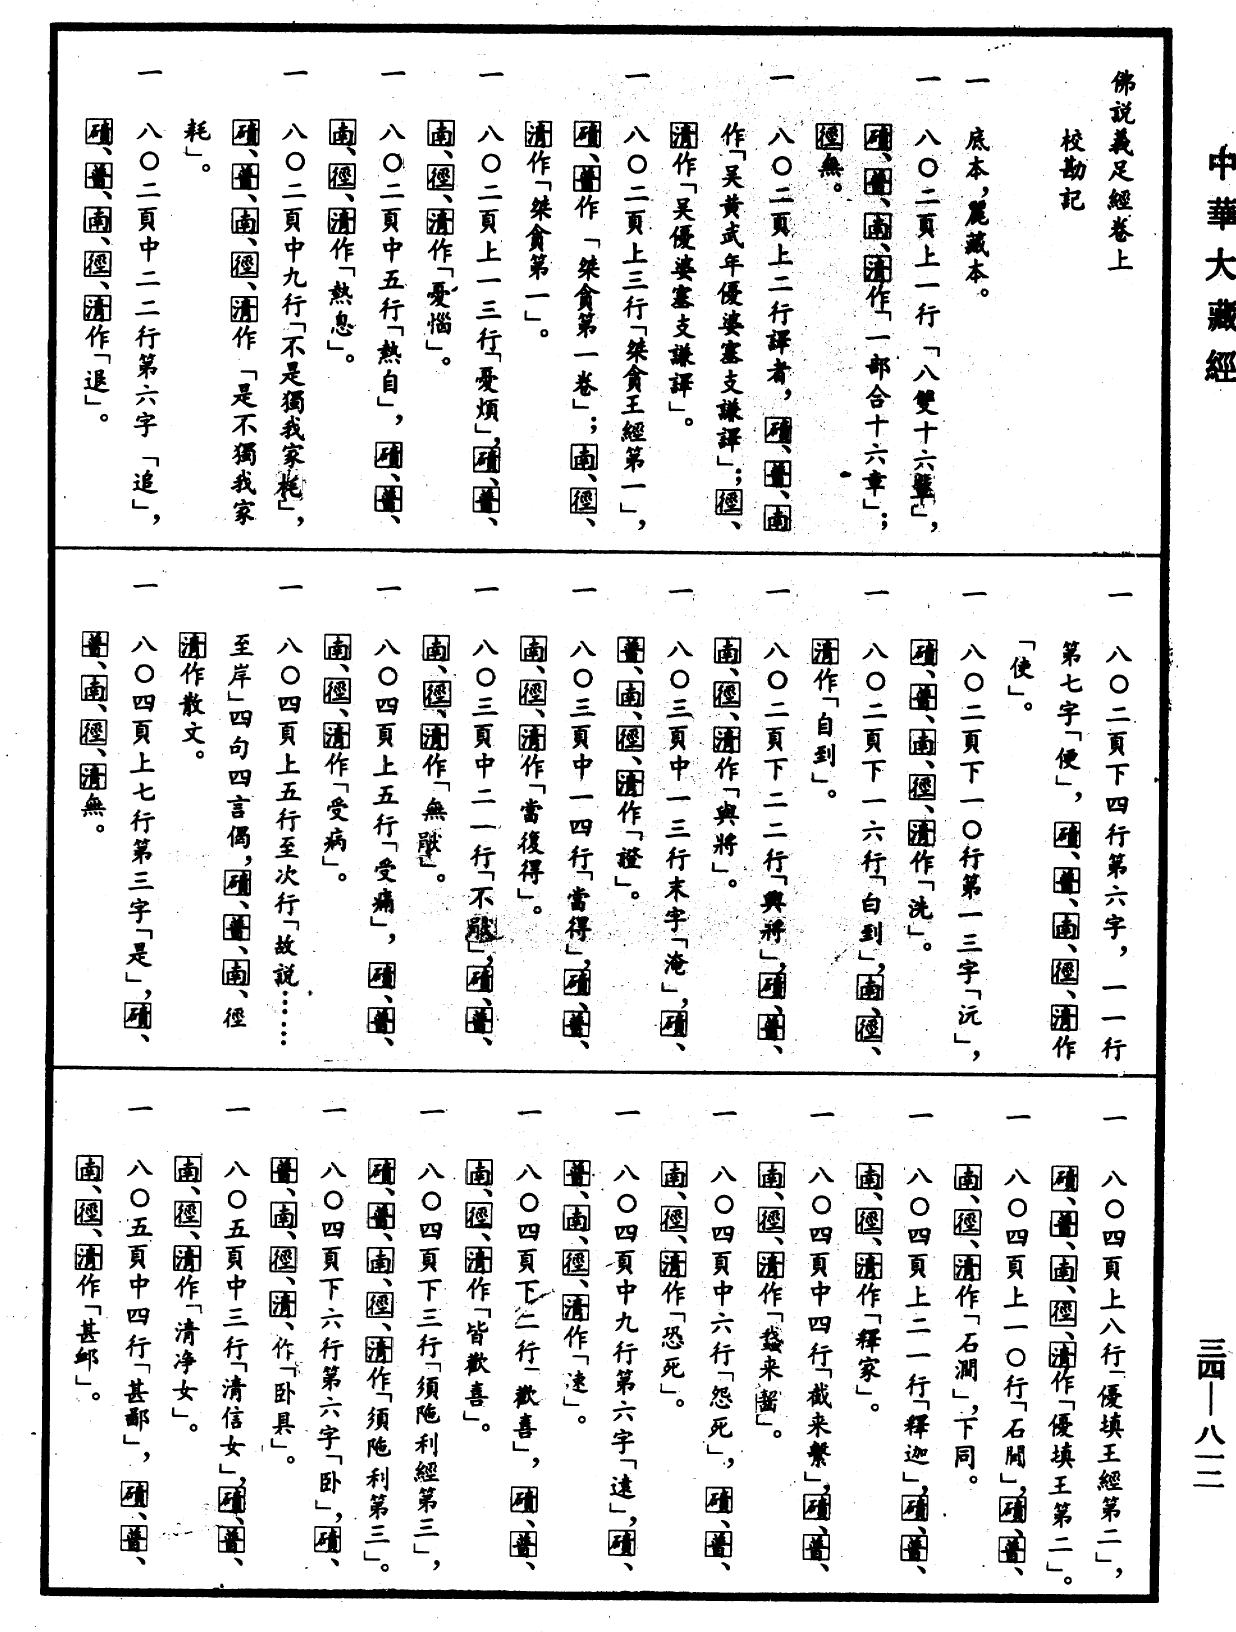 中華大藏經
佛説義足經卷上
校勘記
一 底本，麗藏本。
一 八〇二頁上一行「八雙十六輩」，
磧、普、南、清作「一部合十六章」；
徑無。
一 八〇二頁上二行譯者，磧、普、南
作「吴黄武年優婆塞支謙譯」；徑、
清作「吴優婆塞支謙譯」。
一 八〇二頁上三行「桀貪王經第一」，
磧、普作「桀貪第一卷」；南、徑、
清作「桀貪第一」。
一 八〇二頁上一三行「憂煩」，磧、普、
南、徑、清作「憂惱」。
一 八〇二頁中五行「熱自」，磧、普、
南、徑、清作「熱息」。
一 八〇二頁中九行「不是獨我家耗」，
磧、普、南、徑、清作「是不獨我家
耗」。
一 八〇二頁中二二行第六字「追」，
磧、普、南、徑、清作「退」。
一 八〇二頁下四行第六字，一一行
第七字「便」，磧、普、南、徑、清作
「使」。
一 八〇二頁下一〇行第一三字「沅」，
磧、普、南、徑、清作「洗」。
一 八〇二頁下一六行「白到」，南、徑、
清作「自到」。
一 八〇二頁下二二行「興將」，磧、普、
南、徑、清作「與將」。
一 八〇三頁中一三行末字「淹」，磧、
普、南、徑、清作「證」。
一 八〇三頁中一四行「當得」，磧、普、
南、徑、清作「當復得」。
一 八〇三頁中二一行「不猒」，磧、普、
南、徑、清作「無猒」。
一 八〇四頁上五行「受痛」，磧、普、
南、徑、清作「受病」。
一 八〇四頁上五行至次行「故説……
至岸」四句四言偈，磧、普、南、徑
清作散文。
一 八〇四頁上七行第三字「是」，磧、
普、南、徑、清無。
一 八〇四頁上八行「優填王經第二」，
磧、普、南、徑、清作「優填王第二」。
一 八〇四頁上一〇行「石間」，磧、普、
南、徑、清作「石澗」，下同。
一 八〇四頁上二一行「釋迦」，磧、普、
南、徑、清作「釋家」。
一 八〇四頁中四行「截来繫」，磧、普、
南、徑、清作「螽来齧」。
一 八〇四頁中六行「怨死」，磧、普、
南、徑、清作「恐死」。
一 八〇四頁中九行第六字「遠」，磧、
普、南、徑、清作「速」。
一 八〇四頁下二行「歡喜」，磧、普、
南、徑、清作「皆歡喜」。
一 八〇四頁下三行「須陁利經第三」，
磧、普、南、徑、清作「須陁利第三」。
一 八〇四頁下六行第六字「卧」，磧、
普、南、徑、清、作「卧具」。
一 八〇五頁中三行「清信女」，磧、普、
南、徑、清作「清净女」。
一 八〇五頁中四行「甚鄙」，磧、普、
南、徑、清作「甚邮」。
三四——八一二